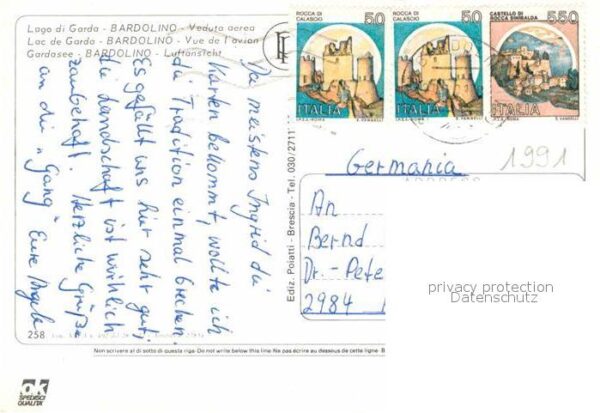 Lago di Garda - BARDOLINO - Veduta aerea
Lac de Garda - BARDOLINO - Vue de l'avion
Gardasee - BARDOLINO - Luftansicht
Da meistens Ingrid die
Karten bekommt, wollte ich
die Tradition einmal brechen.
Es gefällt uns hier sehr gut,
die Landschaft ist wirklich
zauberhaft. Herzliche Grüße
an die "Gang" Eure Angela
258
Ediz. Poiatti - Brescia - Tel. 030/2711
ROCCA DI
CALASCIO
50
ITALIA
ROCCA DI
CALASCIO
50
ITALIA
CASTELLO DI
ROCCA SINIBALDA
550
ITALIA
1991
Germania
An
Bernd
Dr.-Pete
2984
privacy protection
Datenschutz
Non scrivere al di sotto di questa riga - Do not write below this line - Ne pas écrire au dessous de cette ligne - B
ok
SPEDISCI
QUALITA'